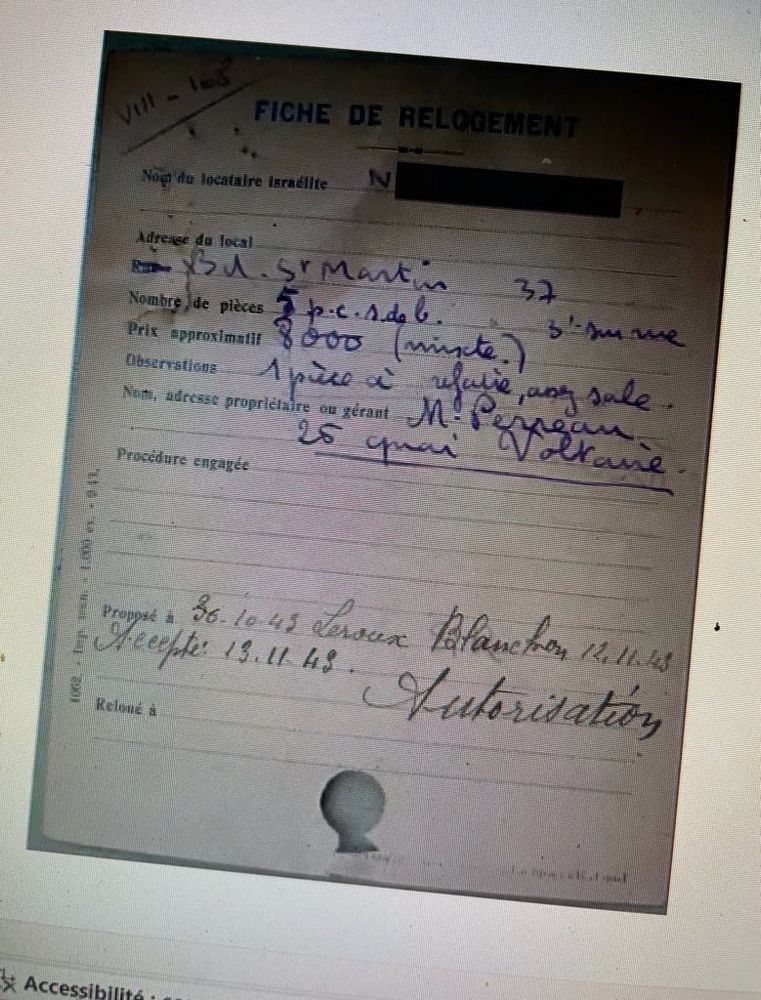 VIII - 168
FICHE DE RELOGEMENT
Nom du locataire israélite N
Adresse du local
Rue Bd. St Martin 37
Nombre de pièces 5 p.c.s.de b. 3e sur rue
Prix approximatif 8000 (mixte.)
Observations 1 pièce à refaire, assez sale.
Nom, adresse propriétaire ou gérant Mr Perreau
25 quai Voltaire.
Procédure engagée
Proposé à 10-43 Leroux Blanchon 12.11.43
Accepté: 13.11.43.
Autorisation
Reloué à
Accessibilité :